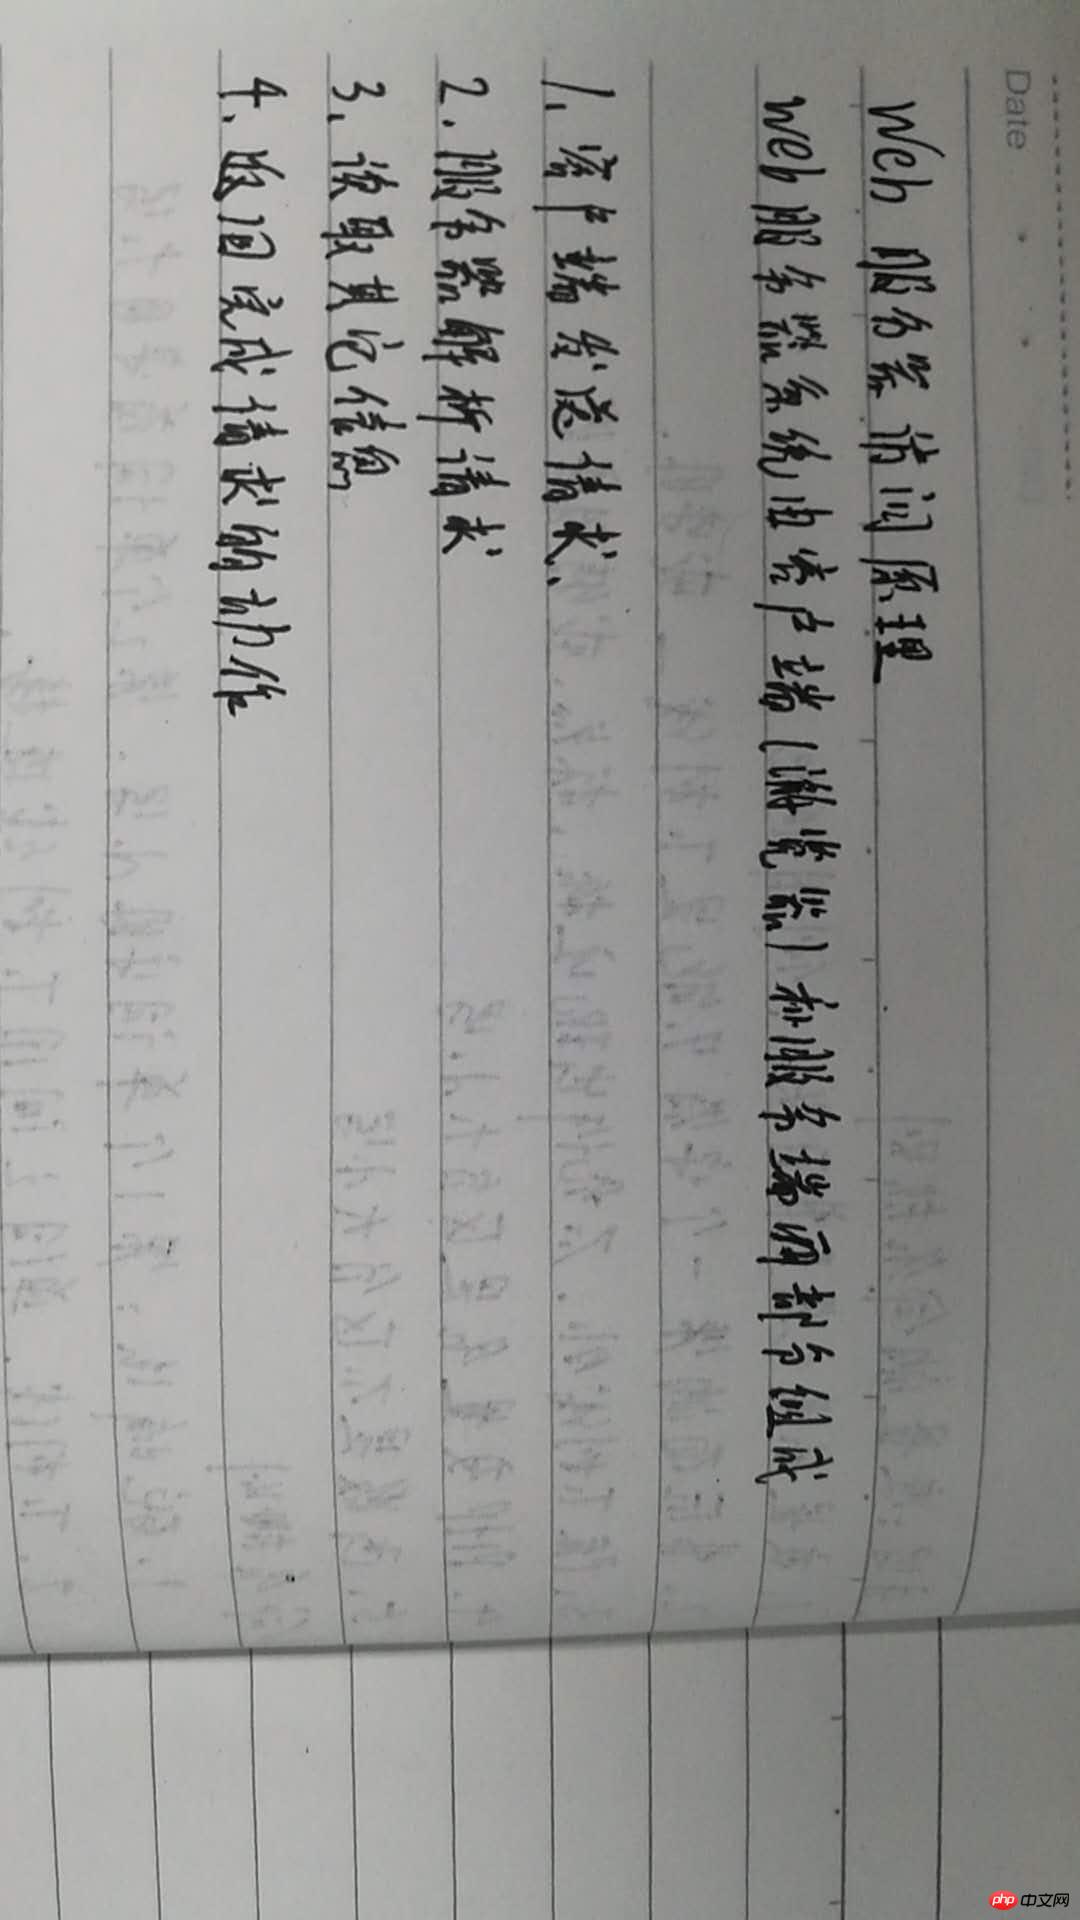 Date
Web 服务器访问原理
web服务器系统由客户端(浏览器)和服务端两部分组成
1、客户端发送请求、
2.服务器解析请求
3、读取其它信息
4、返回完成请求的动作
php 中文网